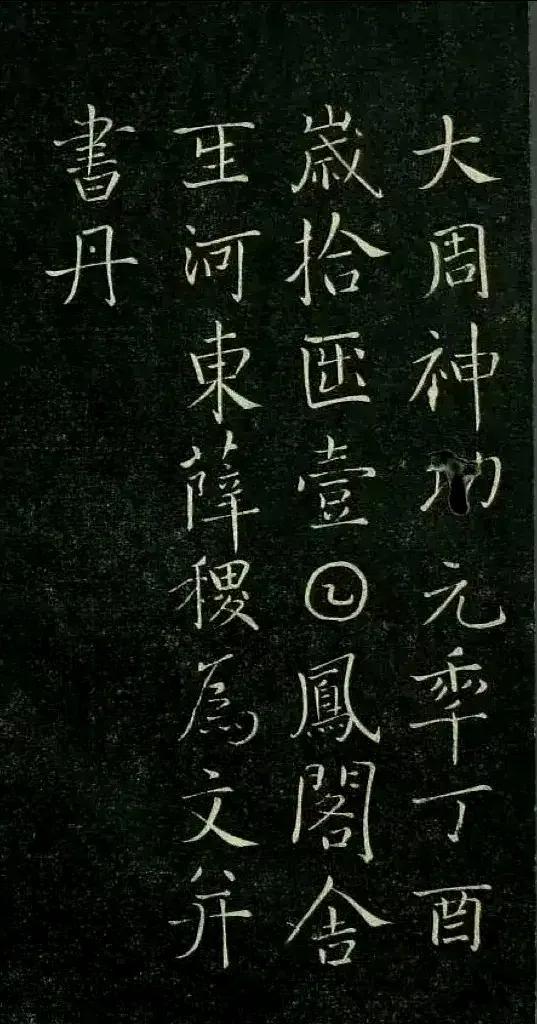 大周神功元𠡦丁酉
歲拾𠥱壹𡆠鳳閣舍
𤯔河東薛稷爲文并
書丹